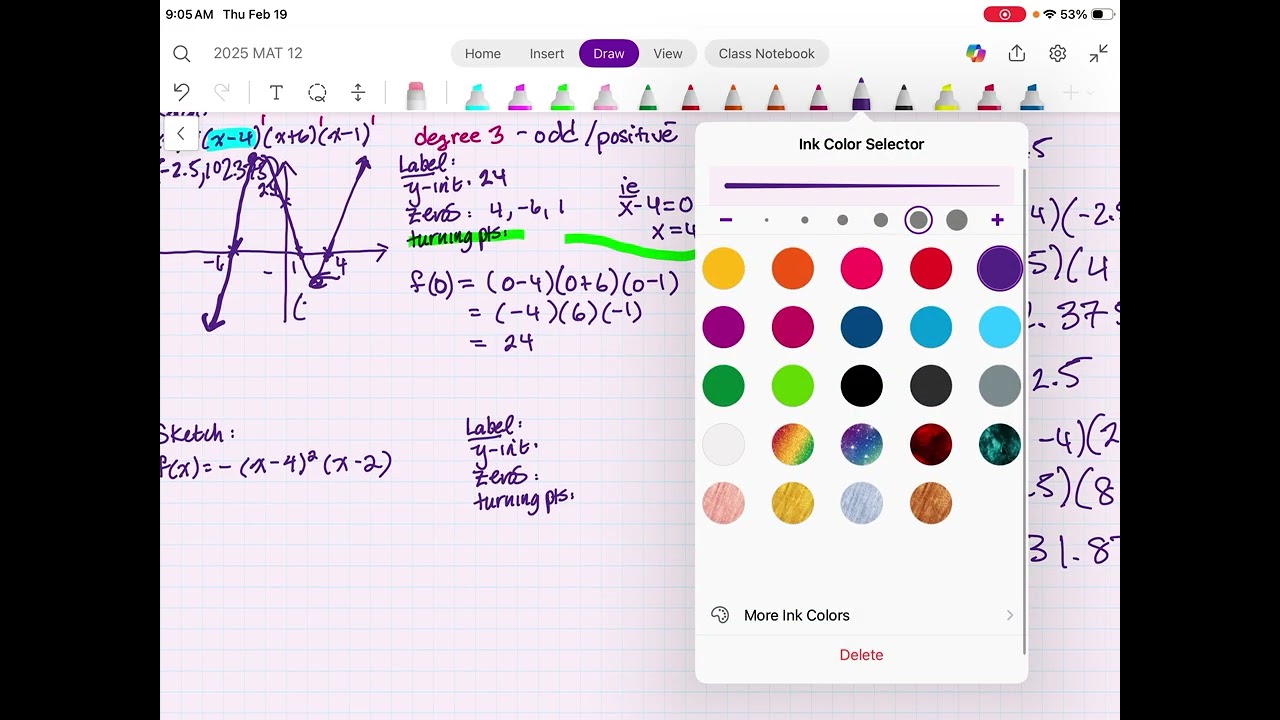 9:05 AM Thu Feb 19
53%
2025 MAT 12
Home Insert Draw View Class Notebook
T
(x-4)(x+6)(x-1)
degree 3 - odd/positive
-2.5, 102.375
24
-6 1 4
(
Label:
y-int. 24
zeros: 4, -6, 1
turning pts:
ie
x-4=0
x=4
f(0) = (0-4)(0+6)(0-1)
= (-4)(6)(-1)
= 24
Sketch:
f(x) = - (x-4)² (x-2)
Label:
y-int.
zeros:
turning pts:
Ink Color Selector
More Ink Colors
Delete
.5
4)(-2.
5)(4
. 375
2.5
-4)(2
.5)(8
31.87